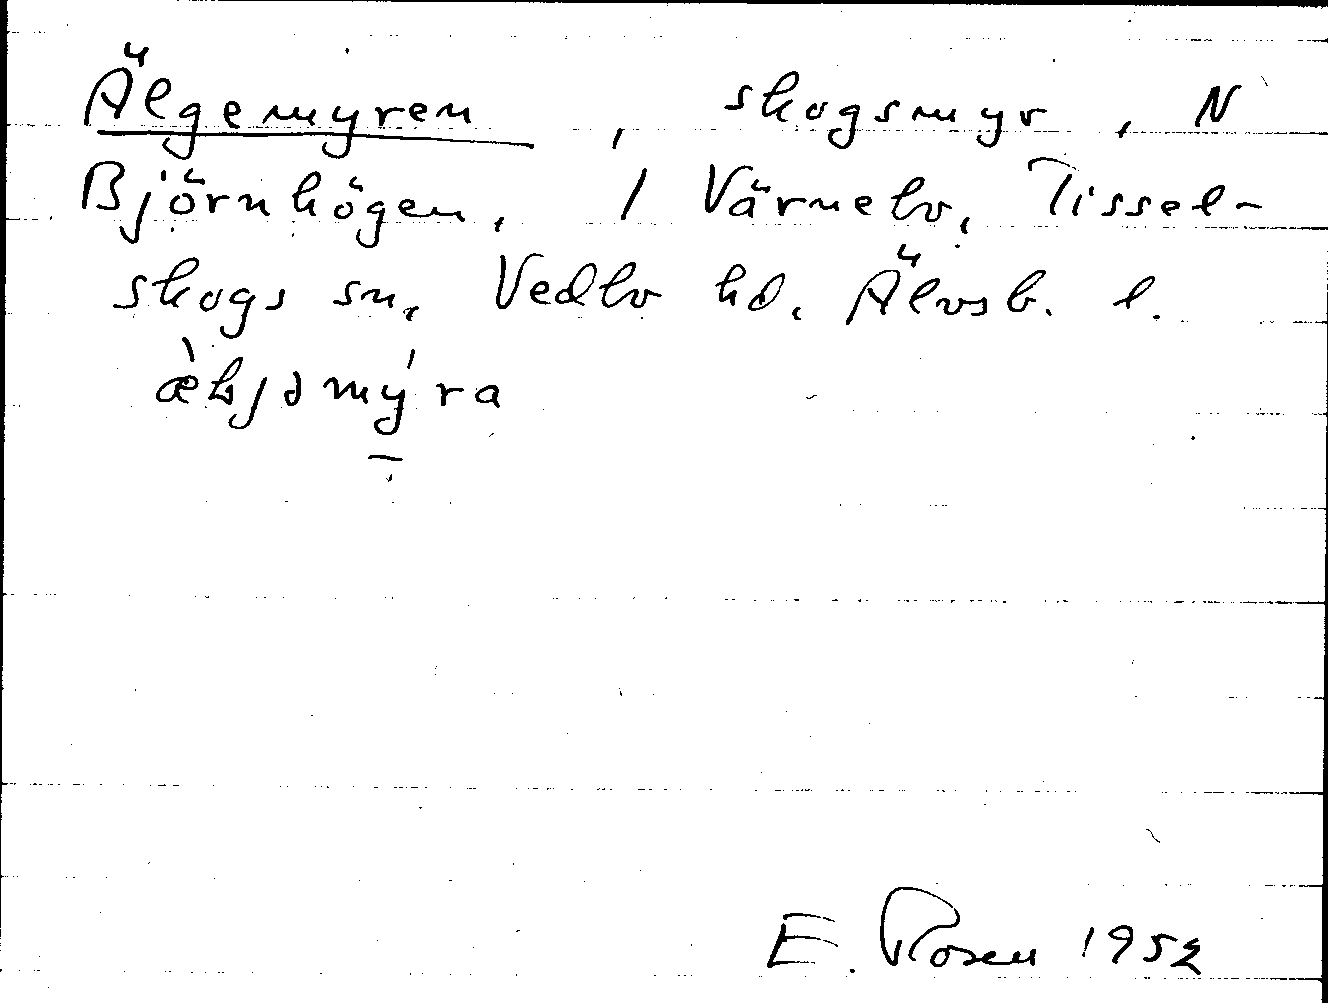 Älgemyren, skogsmyr, N
Björnhögen, 1 Värnebo, Tissel-
skogs sn, Vedbo hd, Älvsb. l.
æ̀ƚjəmýra
E. Rosen 1952